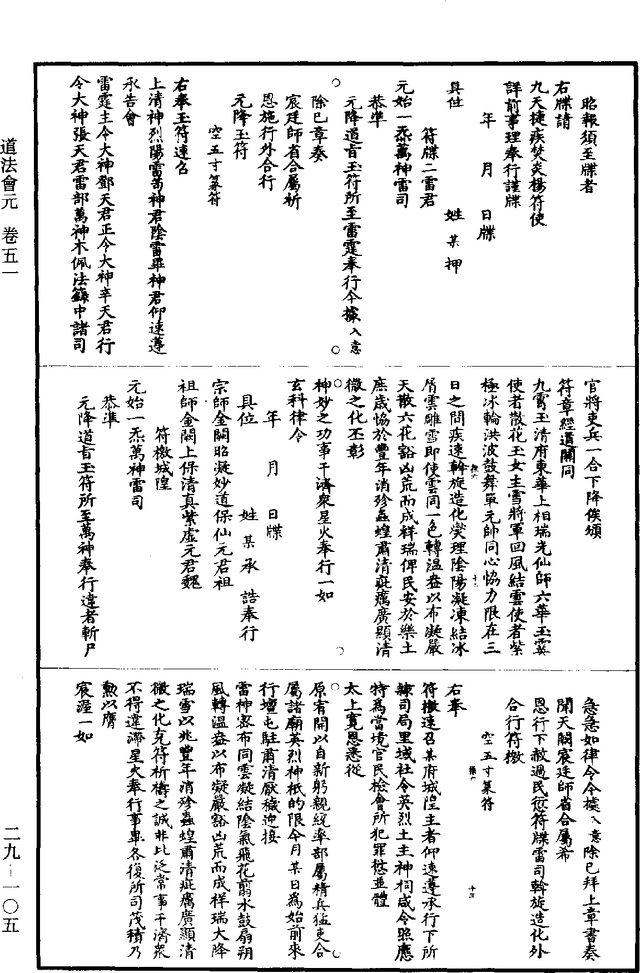 道法會元 卷五一
昭報須至牒者
右牒請
九天捷疾焚炎楊符使
詳前事理奉行謹牒
年 月 日牒
具位 姓 某 押
符牒二雷君
元始一炁萬神雷司
恭準
元降道旨玉符所至雷霆奉行令據入意
除已章奏
宸廷師省合屬祈
恩施行外合行
元降玉符
空五寸篆符
右奉玉符速召
上清神烈陽雷苟神君陰雷畢神君仰速遵
承告會
雷霆主令大神鄧天君正令大神辛天君行
令大神張天君雷部萬神木佩法籙中諸司
官將吏兵一合下降俟頒
符章經道關同
九霄玉清府東華上相瑞光仙師六華玉霙
使者散花玉女主雪將軍回風結雲使者紫
極冰輪洪波鼓舞單元帥同心恊力限在三
日之間疾速斡旋造化燮理陰陽凝凍結冰
屑雲雕雪即使雲同一色轉溫燠以布凝嚴
天散六花豁凶荒而成祥瑞俾民安於樂土
庶歲恊於豐年消殄蟲蝗肅清疵癘廣顯清
微之化丕彰
神妙之功事干濟眾星火奉行一如
玄科律令
年 月 日牒
具位 姓 某 承 誥奉行
宗師金闕昭凝妙道保仙元君祖
祖師金闕上保清真紫虛元君魏
符檄城隍
元始一炁萬神雷司
恭準
元降道旨玉符所至萬神奉行違者斬尸
急急如律令今據入意除已拜上章書奏
聞天閽宸廷師省合屬希
恩行下赦過民愆符牒雷司斡旋造化外
合行符檄
空五寸篆符
右奉
符檄速召某府城隍主者仰速遵承行下所
隸司局里域社令英烈土主神祠咸令照應
特為當境官民檢會所犯罪愆並體
太上寬恩悉從
原宥開以自新躬親統率部屬精兵猛吏合
屬諸廟英烈神祇的限今月某日為始前來
行壇屯駐肅清厭穢迎接
雷神密布同雲凝結陰氣飛花翦水鼓扇朔
風轉溫燠以布凝嚴豁凶荒而成祥瑞大降
瑞雪以兆豐年消殄蟲蝗肅清疵癘廣顯清
微之化克符祈禱之誠非比泛常事干濟眾
不得違滯星火奉行事畢各復所司茂積乃
勲以膺
宸渥一如
二九-一〇五